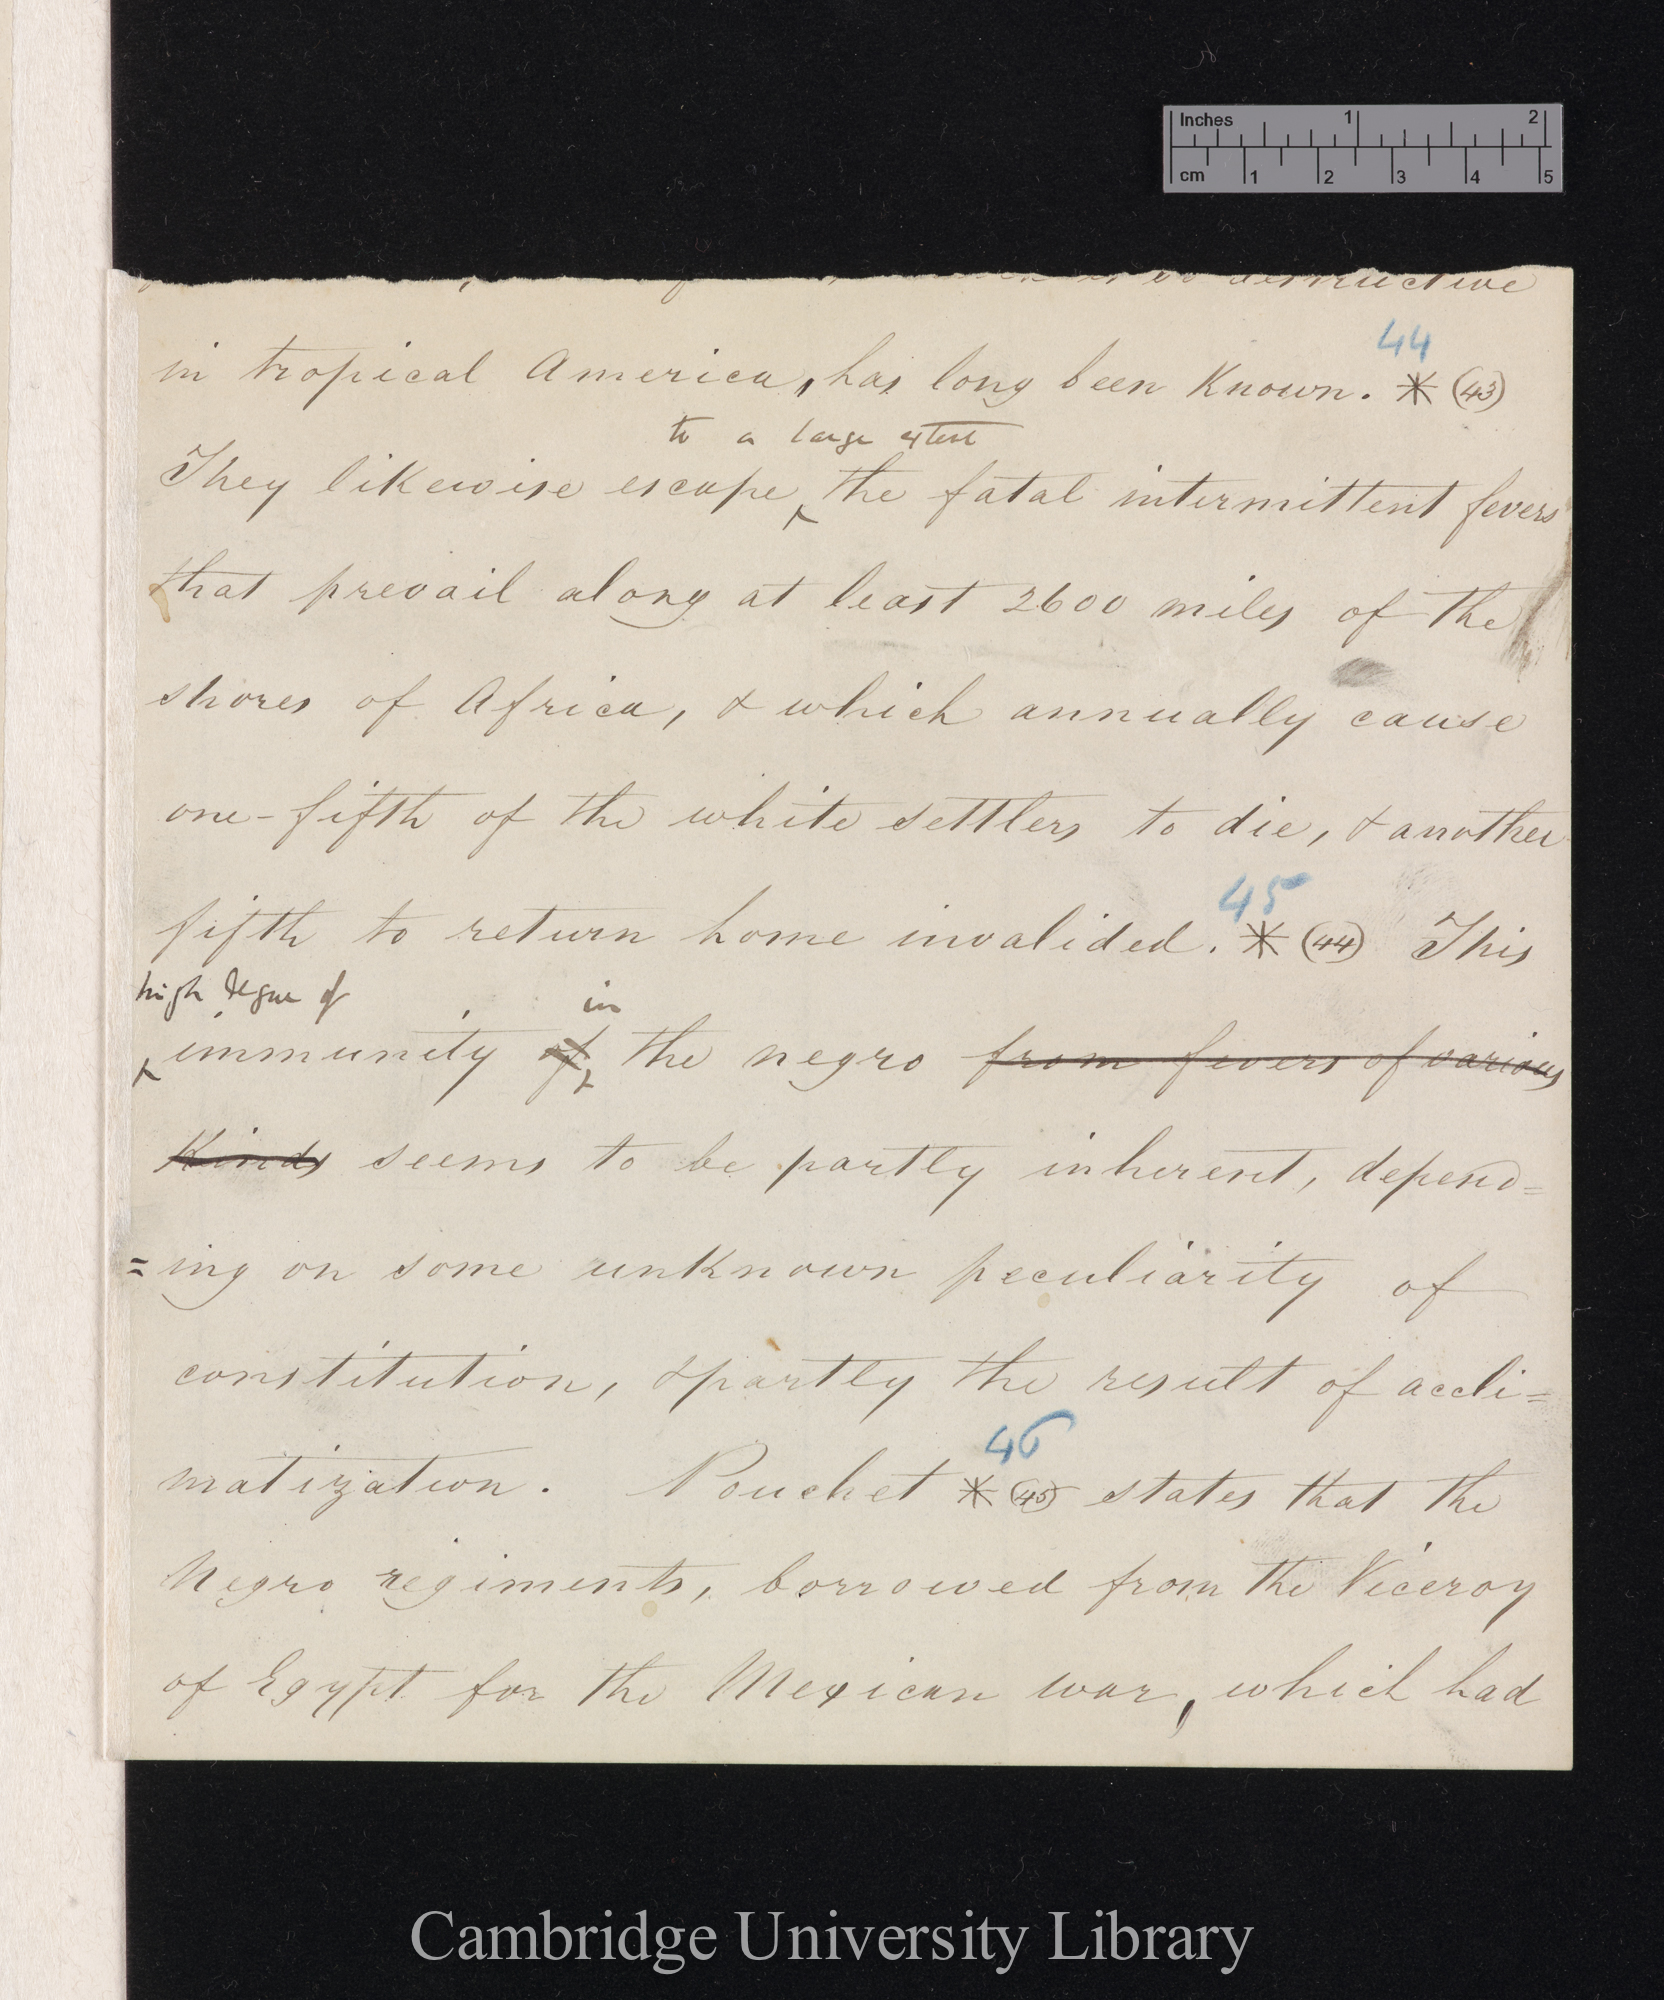 Inches 1 2
cm 1 2 3 4 5
destructive
44
in tropical America, has long been Known. * (43)
to a large extent
They likewise escape ‸ the fatal intermittent fevers
that prevail along at least 2600 miles of the
shores of Africa, & which annually cause
one-fifth of the white settlers to die, & another
45
fifth to return home invalided. * (44) This
high degree of in
‸ immunity of ‸ the negro from fevers of various
Kinds seems to be partly inherent, depend=
=ing on some unknown peculiarity of
constitution, & partly the result of accli=
46
matization. Pouchet * (45) states that the
Negro regiments, borrowed from the Viceroy
of Egypt for the Mexican war, which had
Cambridge University Library